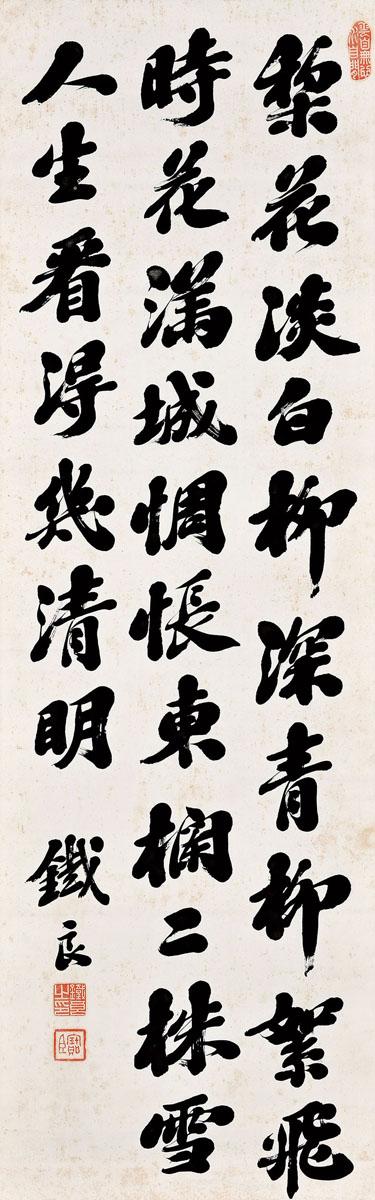 棃花淡白柳深青柳絮飛
時花滿城惆悵東欄二株雪
人生看得幾清明
鐵良
鐵良之印
寶臣